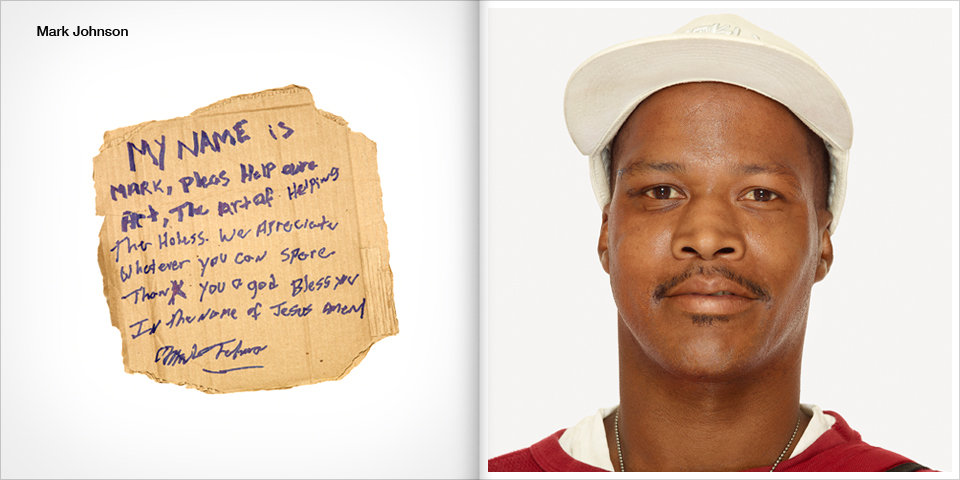 Mark Johnson
MY NAME is
MARK, Pleas Help oure
Art, The art of Helping
The Holess. We Apreciate
Whatever you can Spare
Thank you & god Bless you
In the name of Jesus amen